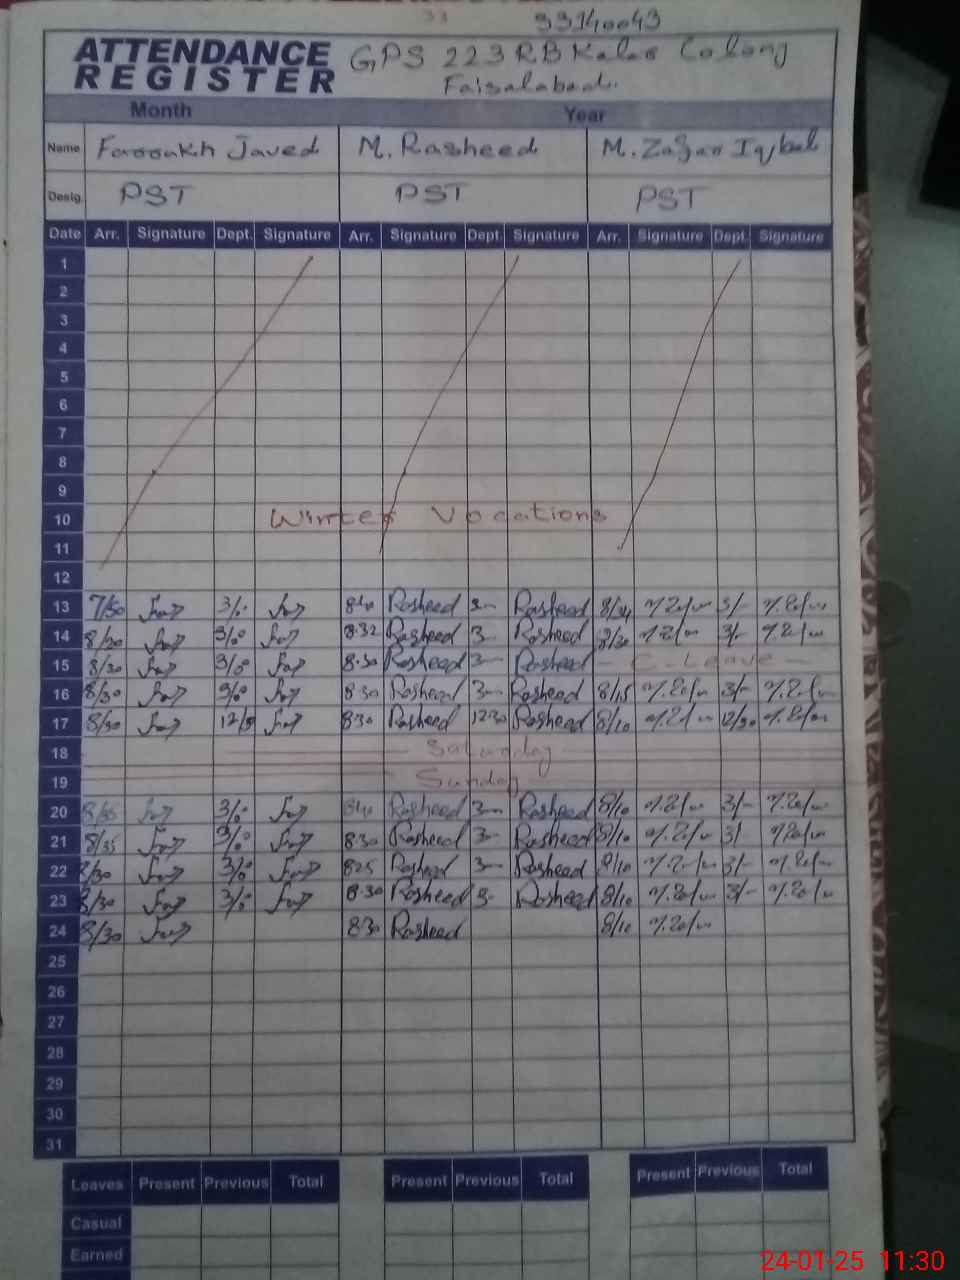 33140043
ATTENDANCE REGISTER GPS 223 RB Kalar Colony
Faisalabad.
Month Year
Name Faroukh Javed M. Rasheed M. Zafar Iqbal
Desig. PST PST PST
Date Arr. Signature Dept. Signature Arr. Signature Dept. Signature Arr. Signature Dept Signature
1
2
3
4
5
6
7
8
9
10 Winter Vocations
11
12
13 7/50 3/0 840 Rasheed 3 Rasheed 8/34 3/-
14 8/20 3/0 8.32 Rasheed 3 Rasheed 8/30 3/-
15 8/30 3/0 8.30 Rasheed 3 Rasheed - C. Leave -
16 8/30 3/0 830 Rasheed 3 Rasheed 8/15 3/-
17 8/30 12/30 830 Rasheed 1230 Rasheed 8/10 12/30
18 Saturday
19 Sunday
20 3/0 Rasheed 3 Rasheed 8/10 3/-
21 8/35 3/0 830 Rasheed 3 Rasheed 8/10 3/
22 8/30 3/0 825 Rasheed 3 Rasheed 8/10 3/-
23 8/30 3/0 8.30 Rasheed 3 Rasheed 8/10 3/-
24 8/30 830 Rasheed 8/10
25
26
27
28
29
30
31
Leaves Present Previous Total Present Previous Total Present Previous Total
Casual
Earned
24-01-25 11:30